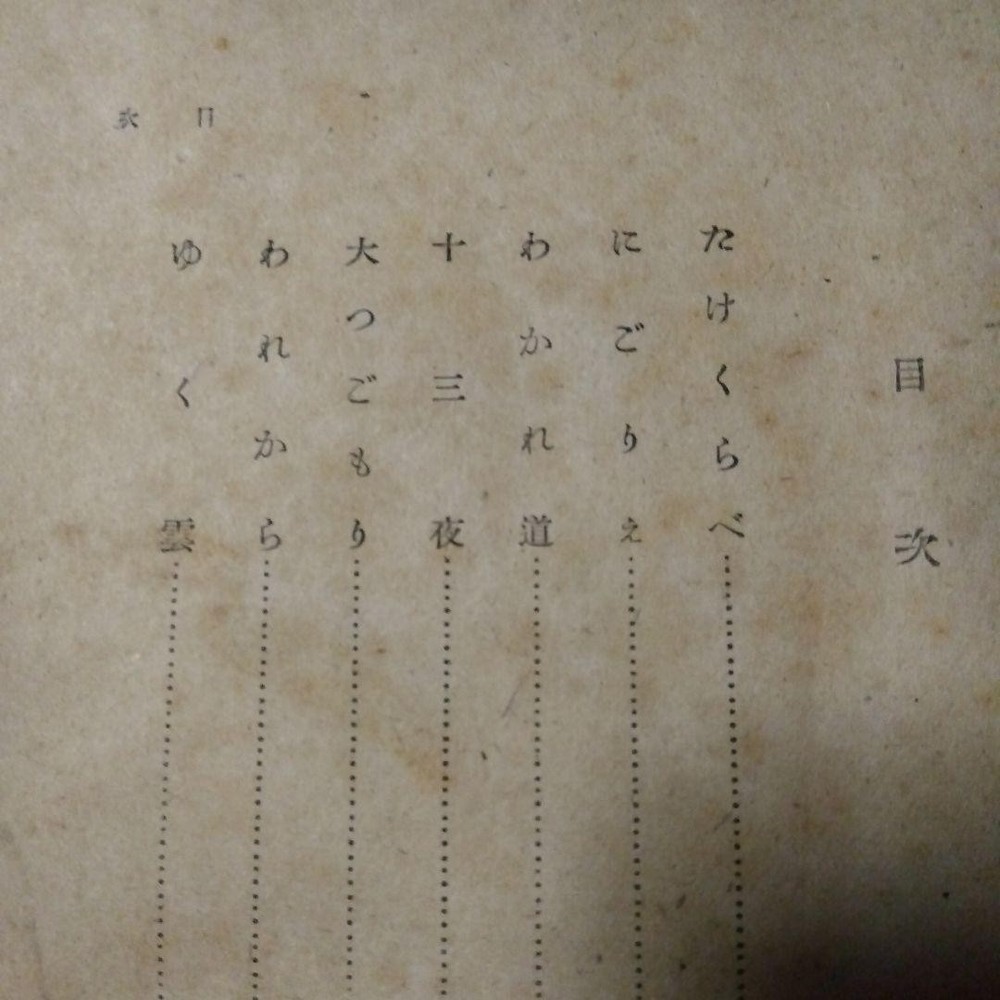 目次
たけくらべ
にごりえ
わかれ道
十三夜
大つごもり
われから
ゆく雲
目次